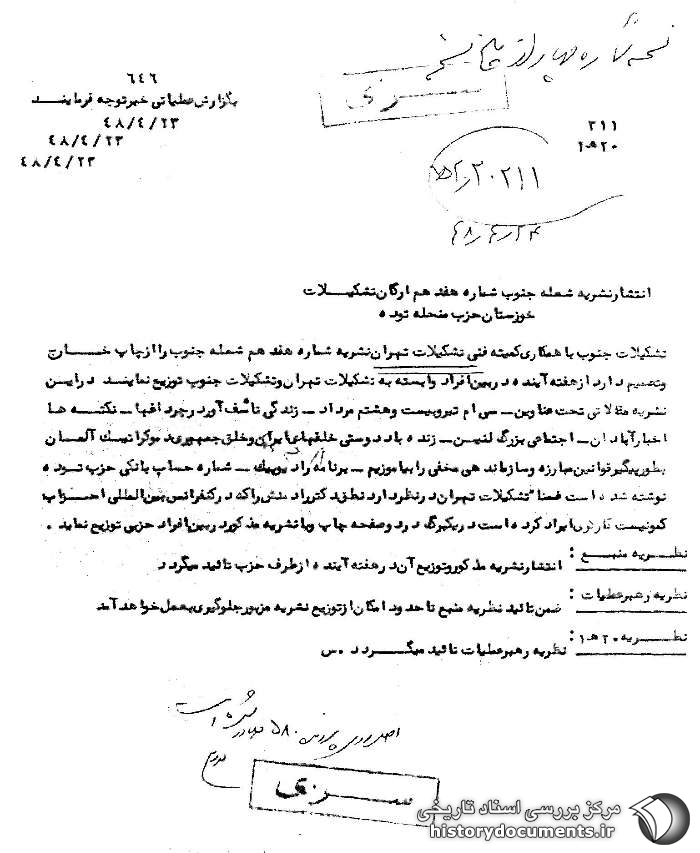 نسخه شماره چهار از پنج نسخه
سری
۶۴۶
بگزارش عملیاتی خبر توجه فرمایند
۴۸/۴/۲۳
۴۸/۴/۲۳
۴۸/۴/۲۳
۲۱۱
۲۰ ه‍ ۱
۲۰۲۱۱
۴۸/۴/۲۴
انتشار نشریه شعله جنوب شماره هفدهم ارگان تشکیلات
خوزستان حزب منحله توده
تشکیلات جنوب با همکاری کمیته فنی تشکیلات تهران نشریه شماره هفدهم شعله جنوب را از چاپ خارج
وتصمیم دارد از هفته آینده دربین افراد وابسته به تشکیلات تهران وتشکیلات جنوب توزیع نمایند درایـن
نشریه مقالاتی تحت عناوین ـ سی ام تیر وبیست وهشتم مرداد ـ زندگی تأسف آور درچراقها ـ نکتـه هـا
اخبار آبادان ـ اجتماعی بزرگ لنین ـ زنده باد دوستی خلقهای ایران وخلق جمهوری دموکراتیک آلمـان
بطور پیگیر قوانین مبارزه وسازماندهی مخفی را بیاموزیم ـ برنامه رادیو پیک ـ شماره حساب بانکی حزب تـوده
نوشته شده است ضمنا" تشکیلات تهران درنظر دارد نطق دکتر رادمنش را که درکنفرانس بین المللی احـزاب
کمونیست ایراد کرده است دریکبرگ دردو صفحه چاپ وبا نشریه مذکور دربین افراد حزبی توزیع نماید .
نظـریه منبـع : انتشار نشریه مذکور وتوزیع آن در هفته آینده از طرف حزب تائید میگردد
نظریه رهبر عملیات : ضمن تائید نظریه منبع تا حدود امکان از توزیع نشریه مزبور جلوگیری بعمل خواهد آمد
نظـریه ۲۰ ه‍ ۱ : نظریه رهبر عملیات تائید میگـردد . س
اصل در پرونده ۵۸۰
سری
مرکز بررسی اسناد تاریخی
historydocuments.ir